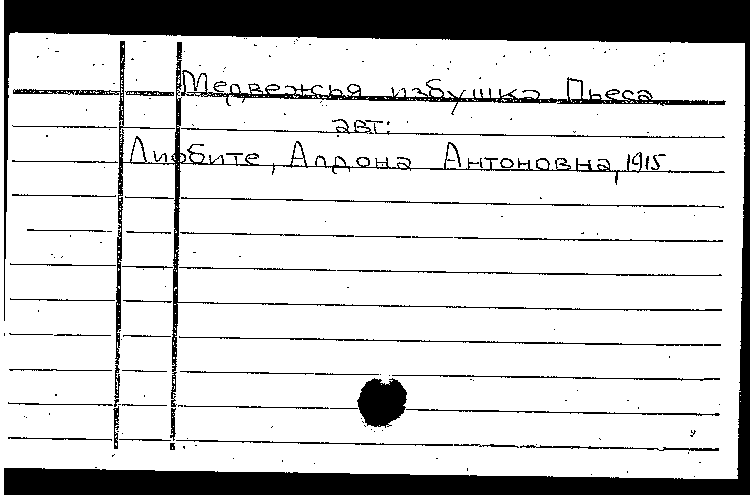 Медвежья избушка Пьеса
авт:
Лиобите, Алдона Антоновна, 1915